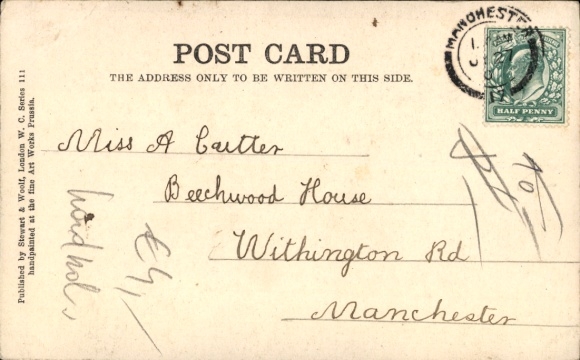 MANCHESTER
POST CARD
THE ADDRESS ONLY TO BE WRITTEN ON THIS SIDE.
HALF PENNY
Miss A Cautter
Beechwood House
Withington Rd
Manchester
Published by Stewart & Woolf, London W. C. Series 111
handpainted at the fine Art Works Prussia.